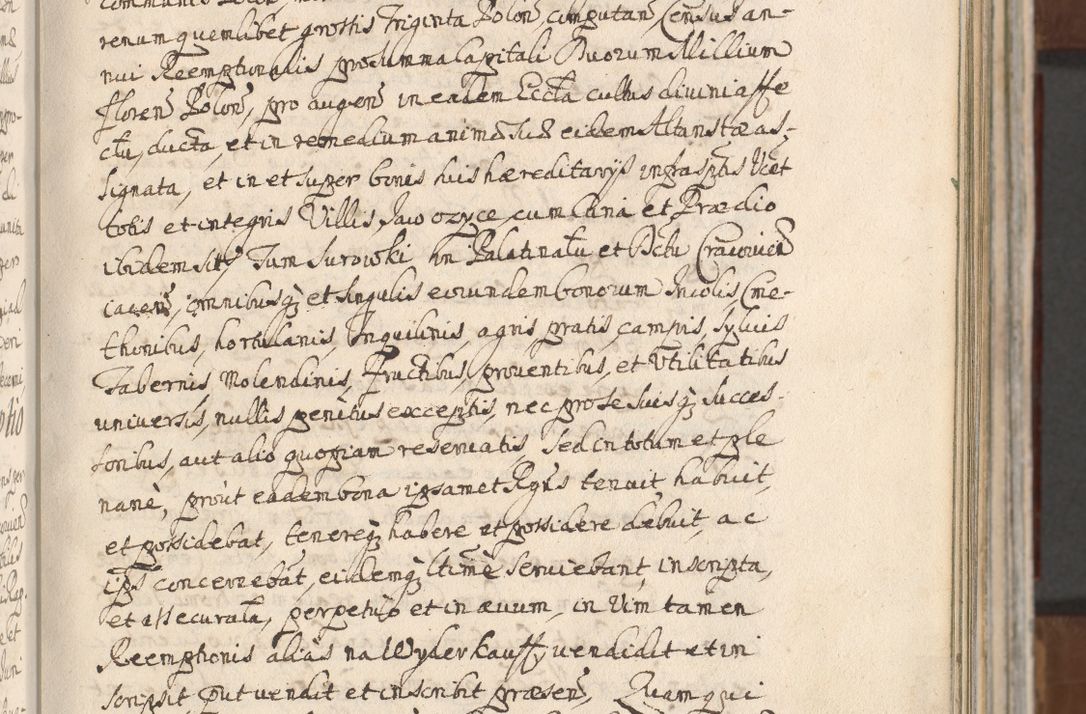 renum quemlibet grossis Triginta Polon, computan, Census an-
nui Reemptionalis pro summa Capitali Duorum Millium
floren Polon, pro augen in eadem Eccta cultus divini affe
ctu, ducta, et in remedium animæ suæ eidem Altaristæ as-
signata, et in et super bonis suis hæreditarijs infrasptis Vcet
totis et integris Villis, Jaworzyce cum Curia et Prædio
ibidem sitis Tum Surowki In Palatinatu et Dctu Cracovien
iacen, omnibusq et singulis eorundem bonorum Incolis Cme-
thonibus, hortulanis, Inquilinis, agris pratis, campis, Sylvis
Tabernis Molendinis, Fructibus, proventibus, et Vtilitatibus
universis, nullis penitus exceptis, nec pro se suisq Succes-
soribus, aut alio quopiam reservatis, sed in totum et ple
nanè, prout eadem bona ipsamet Rgns tenuit habuit,
et possidebat, tenereq habere et possidere debuit, ac
ips concernebat, eidemq ltimè serviebant, inscripta,
et assecurata, perpetuò et in ævum, in Vim tamen
Reemptionis alias na Wyderkauff, vendidit et in
scripsit put vendit et inscribit præsen, Quam qui